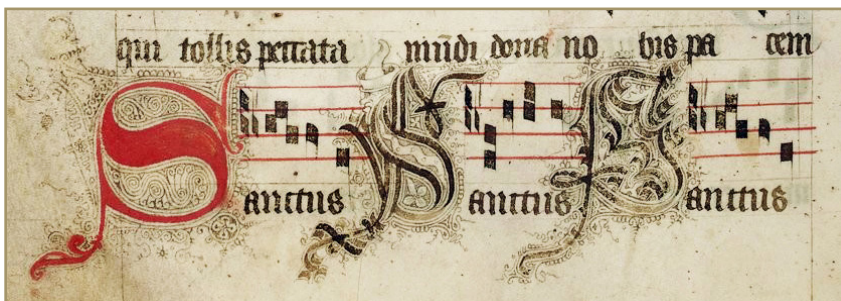 qui tollis peccata mūdi dona no bis pa cem
Sanctus Sanctus Sanctus